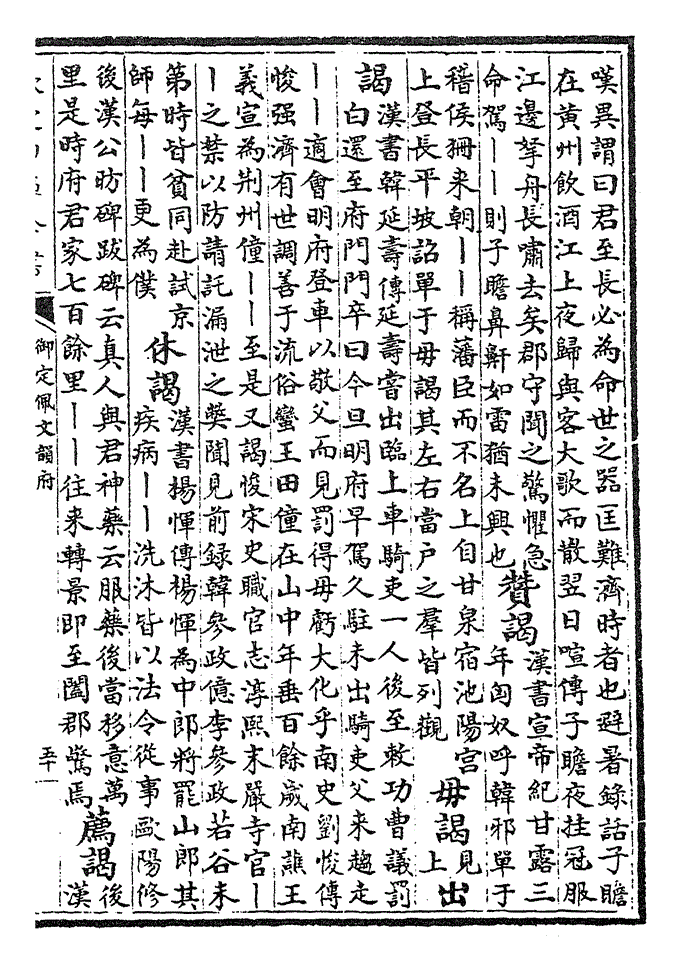 嘆異謂曰君至長必為命世之器匡難濟時者也避暑錄話子瞻
在黃州飲酒江上夜歸與客大歌而散翌日喧傳子瞻夜挂冠服
江邊拏舟長嘯去矣郡守聞之驚懼急
命駕丨丨則子瞻鼻鼾如雷猶未興也
贊謁
漢書宣帝紀甘露三
年匈奴呼韓邪單于
稽侯狦来朝丨丨稱藩臣而不名上自甘泉宿池陽宮
上登長平坡詔單于毋謁其左右當户之羣皆列觀
毋謁
見
上
出
謁
漢書韓延壽傳延壽嘗出臨上車騎吏一人後至敕功曹議罰
白還至府門門卒曰今旦明府早駕久駐未出騎吏父来趨走
丨丨適會明府登車以敬父而見罰得毋虧大化乎南史劉悛傳
悛强濟有世調善于流俗蠻王田僮在山中年垂百餘歲南譙王
義宣為荆州僮丨丨至是又謁悛宋史職官志淳熙末嚴寺官丨
丨之禁以防請託漏泄之弊聞見前録韓參政億李參政若谷未
第時皆貧同赴試京
師每丨丨更為僕
休謁
漢書楊惲傳楊惲為中郎將罷山郎其
疾病丨丨洗沐皆以法令從事歐陽修
後漢公昉碑跋碑云真人與君神藥云服藥後當移意萬
里是時府君家七百餘里丨丨往来轉景即至闔郡驚焉
薦謁
後
漢
御定佩文韻府
五十一